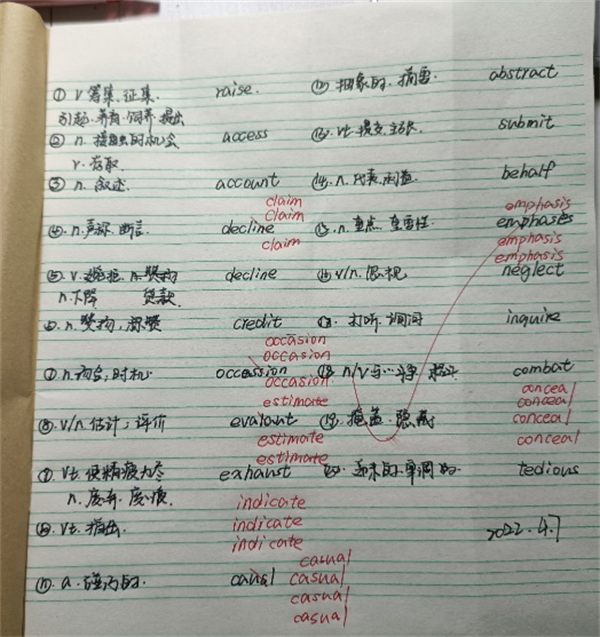 ① v 筹集、征集. raise. ⑫ 抽象的. 摘要 abstract
引起. 养育. 饲养 提出
② n. 接近的机会 access ⑬. vt. 提交. 主张. submit
v. 存取.
③ n. 叙述. account ⑭. n. 代表. 利益. behalf
claim
claim emphasis
④. n. 声称. 断言. decline ⑮. n. 重点. 重要性. emphases
claim emphasis
emphasis
⑤. v. 婉拒. n. 赞扬 decline ⑯ v/n. 忽视 neglect
n. 下降 贷款
⑥. n. 赞扬, credit 打听. 调问 inquire
occasion
occasion
⑦ n. 场合; 时机. occession ⑱ n/v 与…斗争 combat
occasion. conceal
estimate conceal
⑧. v/n. 估计; 评价 evaluant ⑲. 掩盖. 隐藏 conceal
estimate conceal
estimate
⑨. vt. 使精疲力尽 exhaust ⑳. 乏味的. 单调的. tedious
n. 废弃. 废
indicate
⑩. vt. 指出. indicate 2022.4.7
indicate
casual
⑪. a. 碰巧的. caual casual
casual
casual